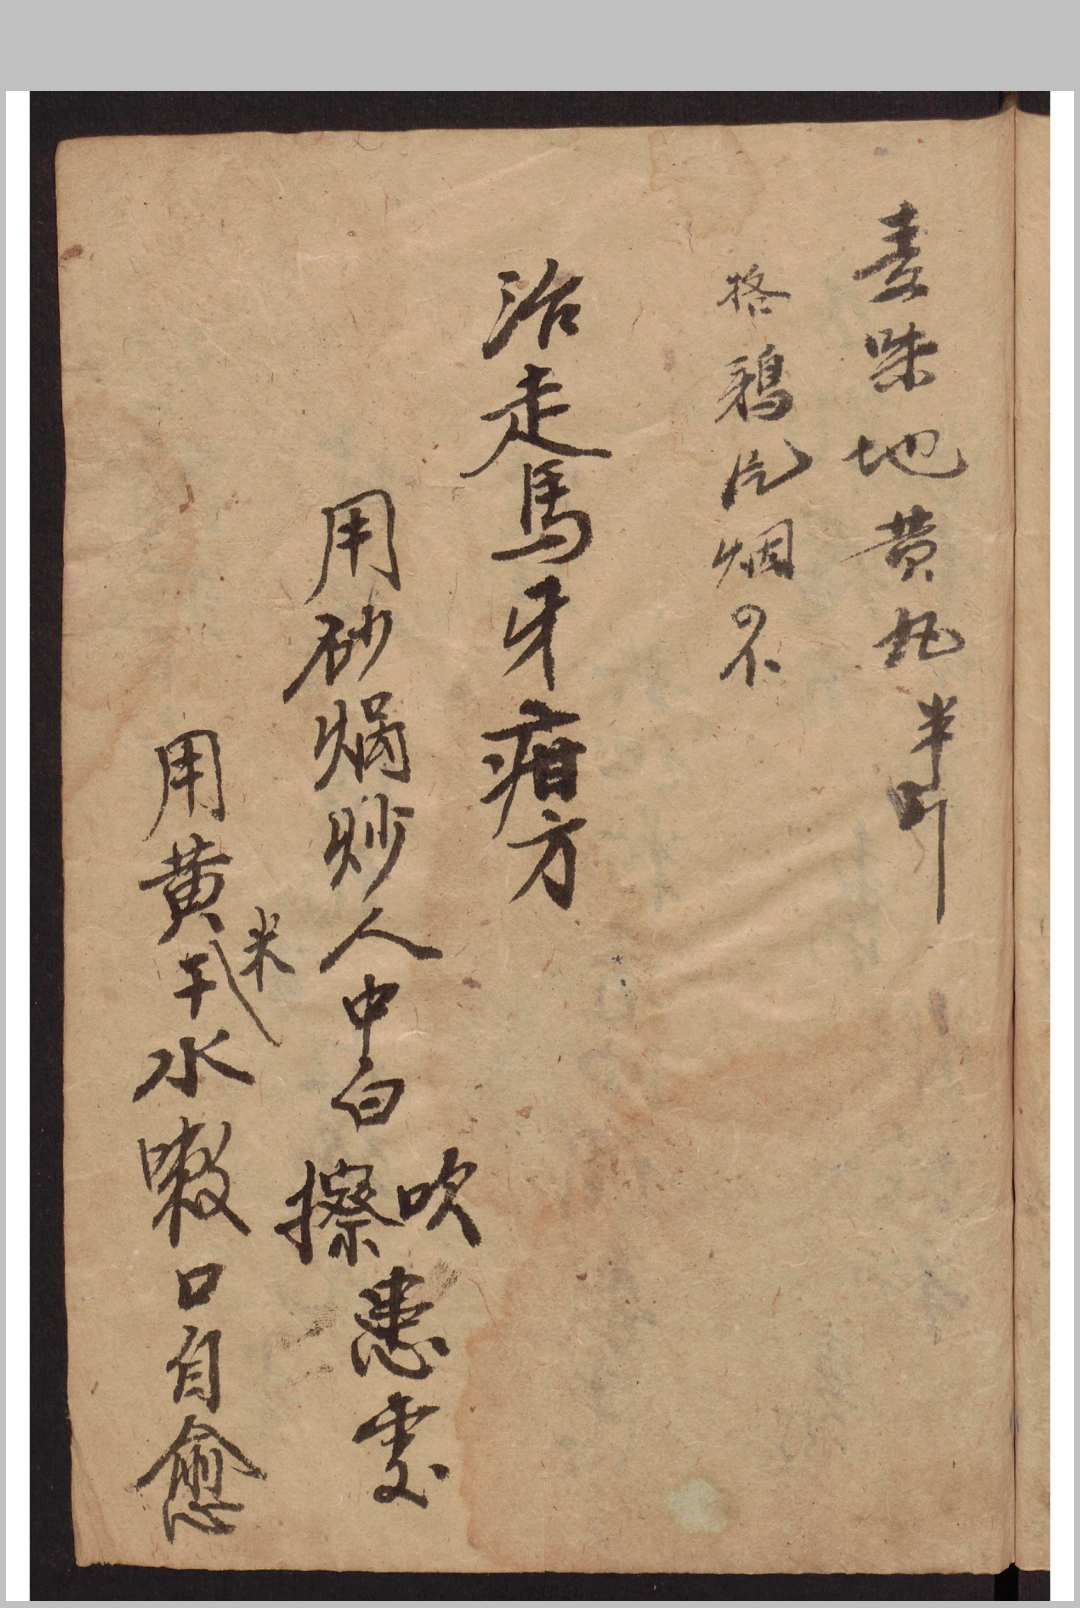 麦味地黄丸半斤
格鴉片烟不
治走馬牙疳方
用砂焗炒人中白吹擦患处
用黄米水嗽口自愈